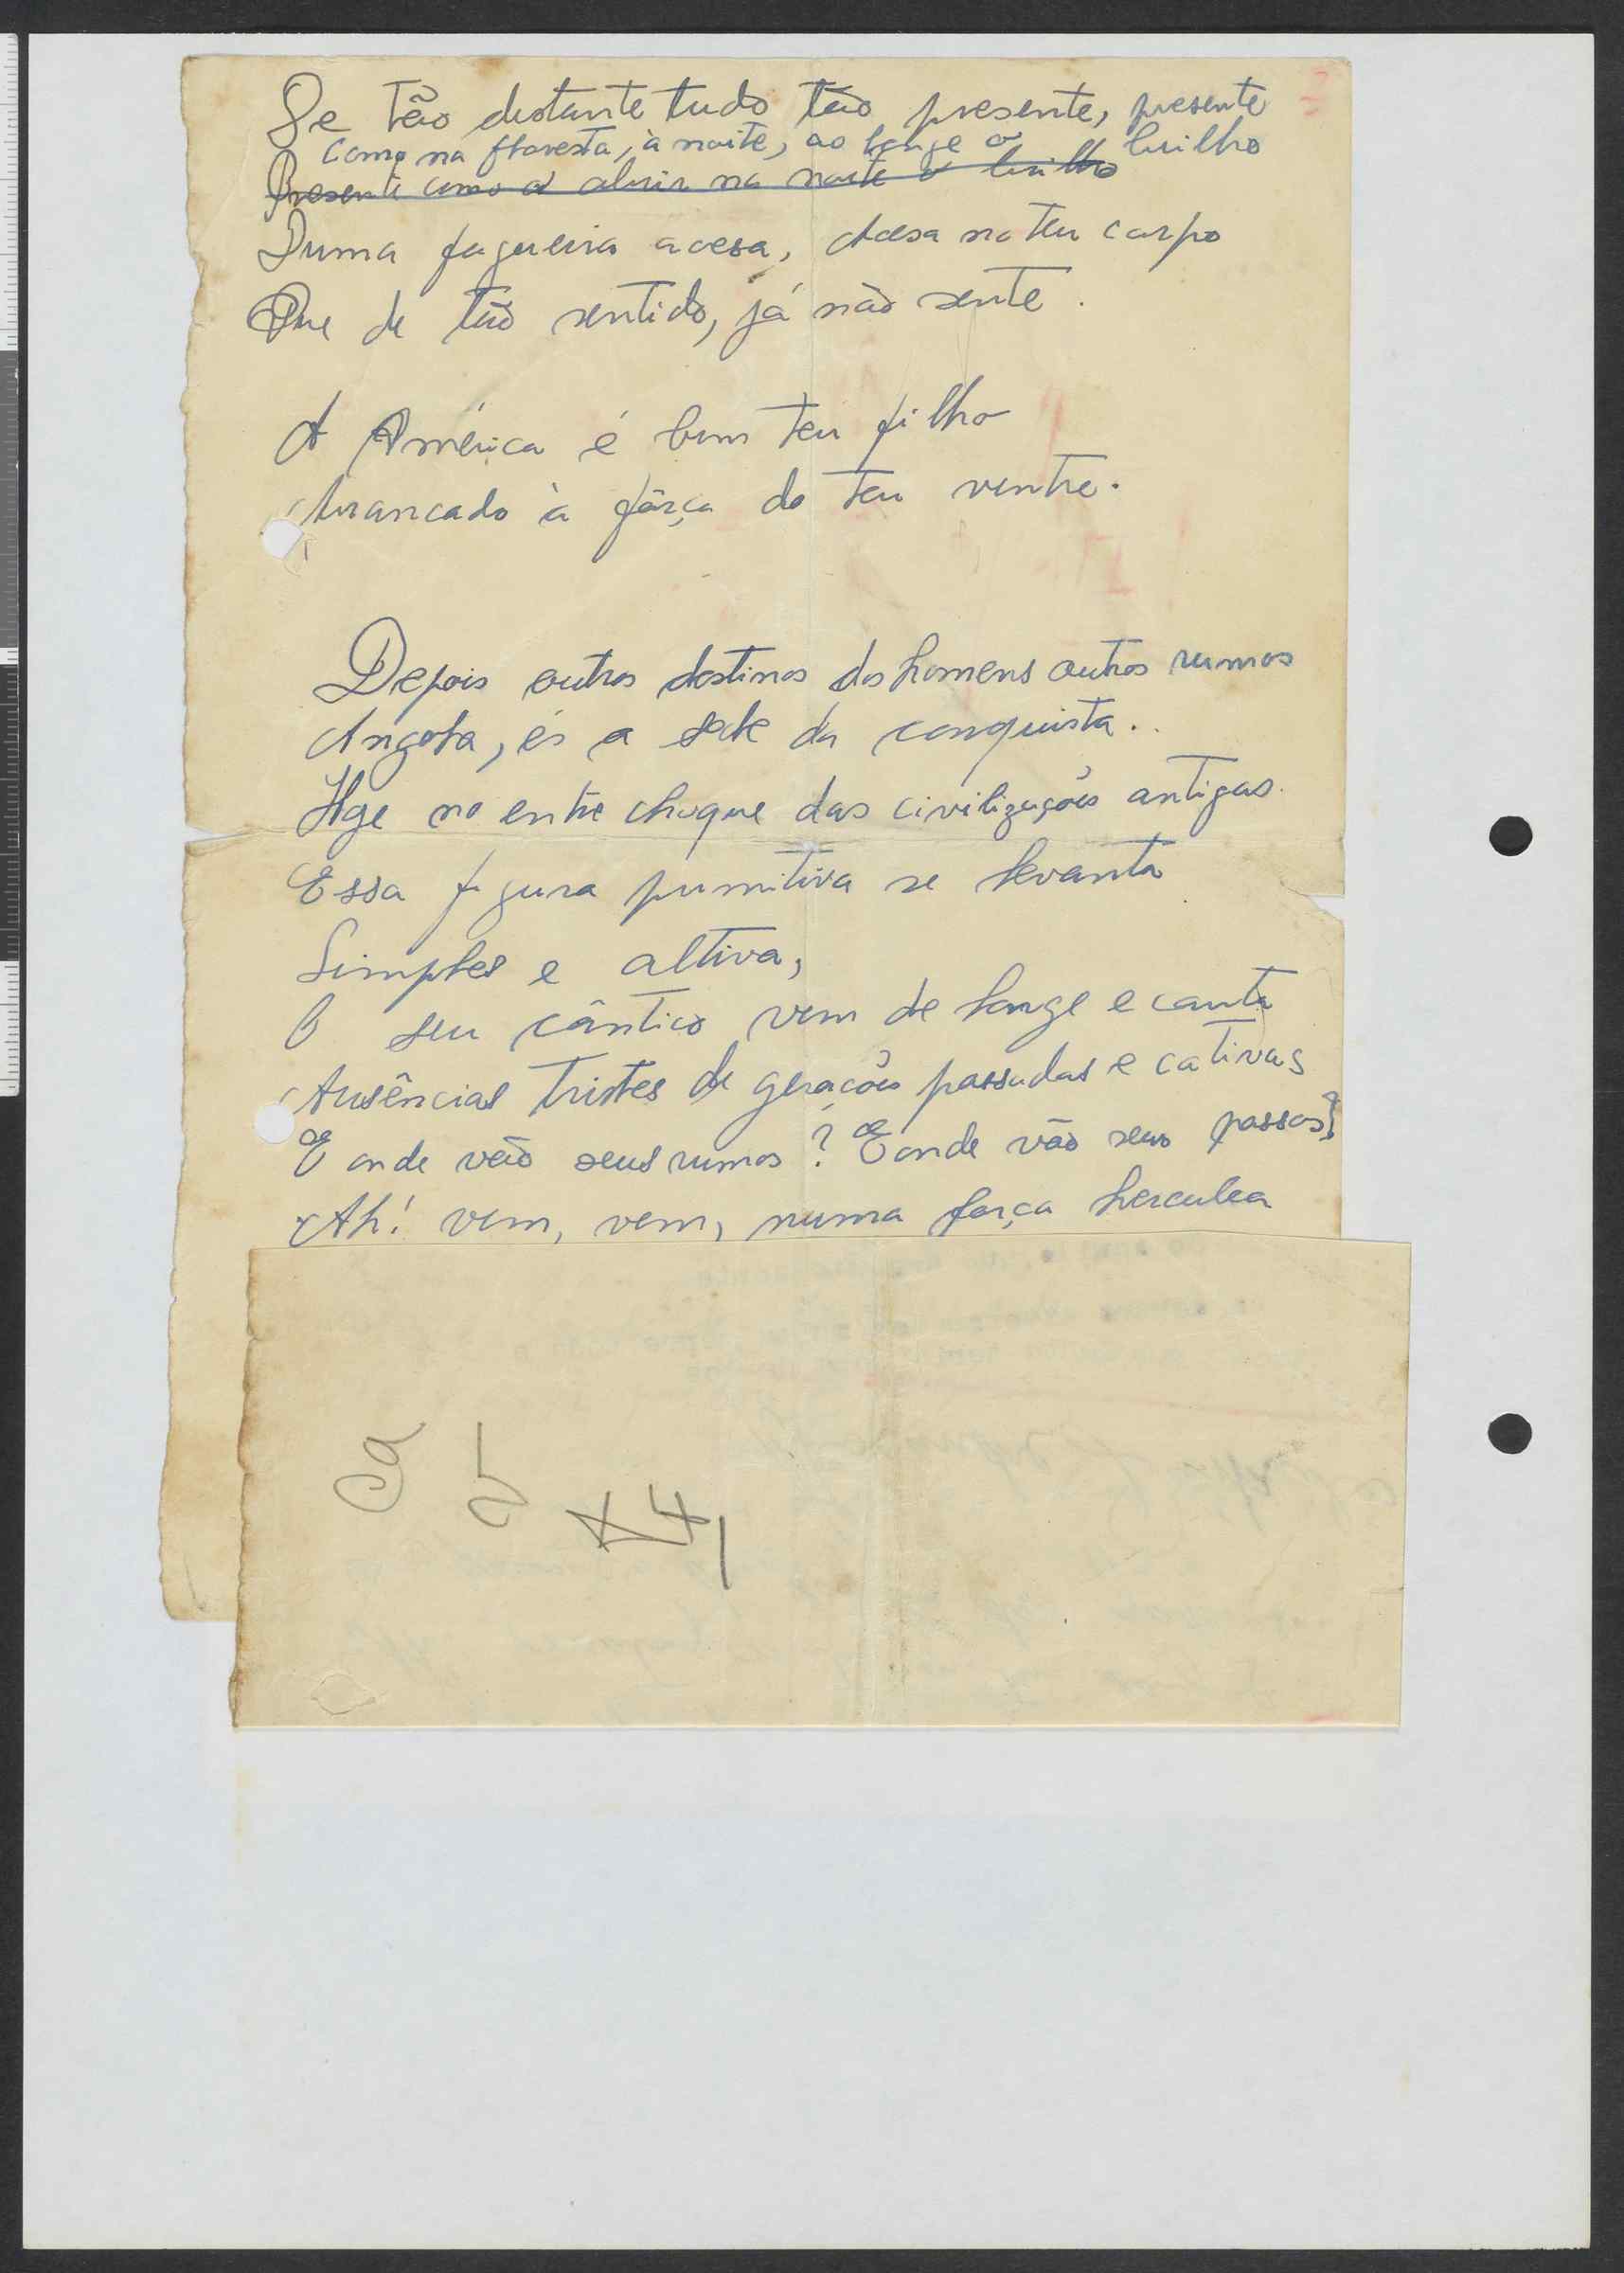 De tão distante tudo tão presente, presente
como na floresta, à noite, ao longe o brilho
Presente como o abrir na noite o brilho
Duma fogueira acesa, Acesa no teu corpo
Que de tão sentido, já não sente.
A América é bem teu filho
Arrancado à fôrça do teu ventre.
Depois outros destinos dos homens outros rumos
Angola, és a sede da conquista.
Hoje no entre choque das civilizações antigas
Essa figura primitiva se levanta
Simples e altiva,
O seu cântico vem de longe e canta
Ausências tristes de gerações passadas e cativas
E onde vão seus rumos? E onde vão seus passos?
Ah! vem, vem, numa força herculea